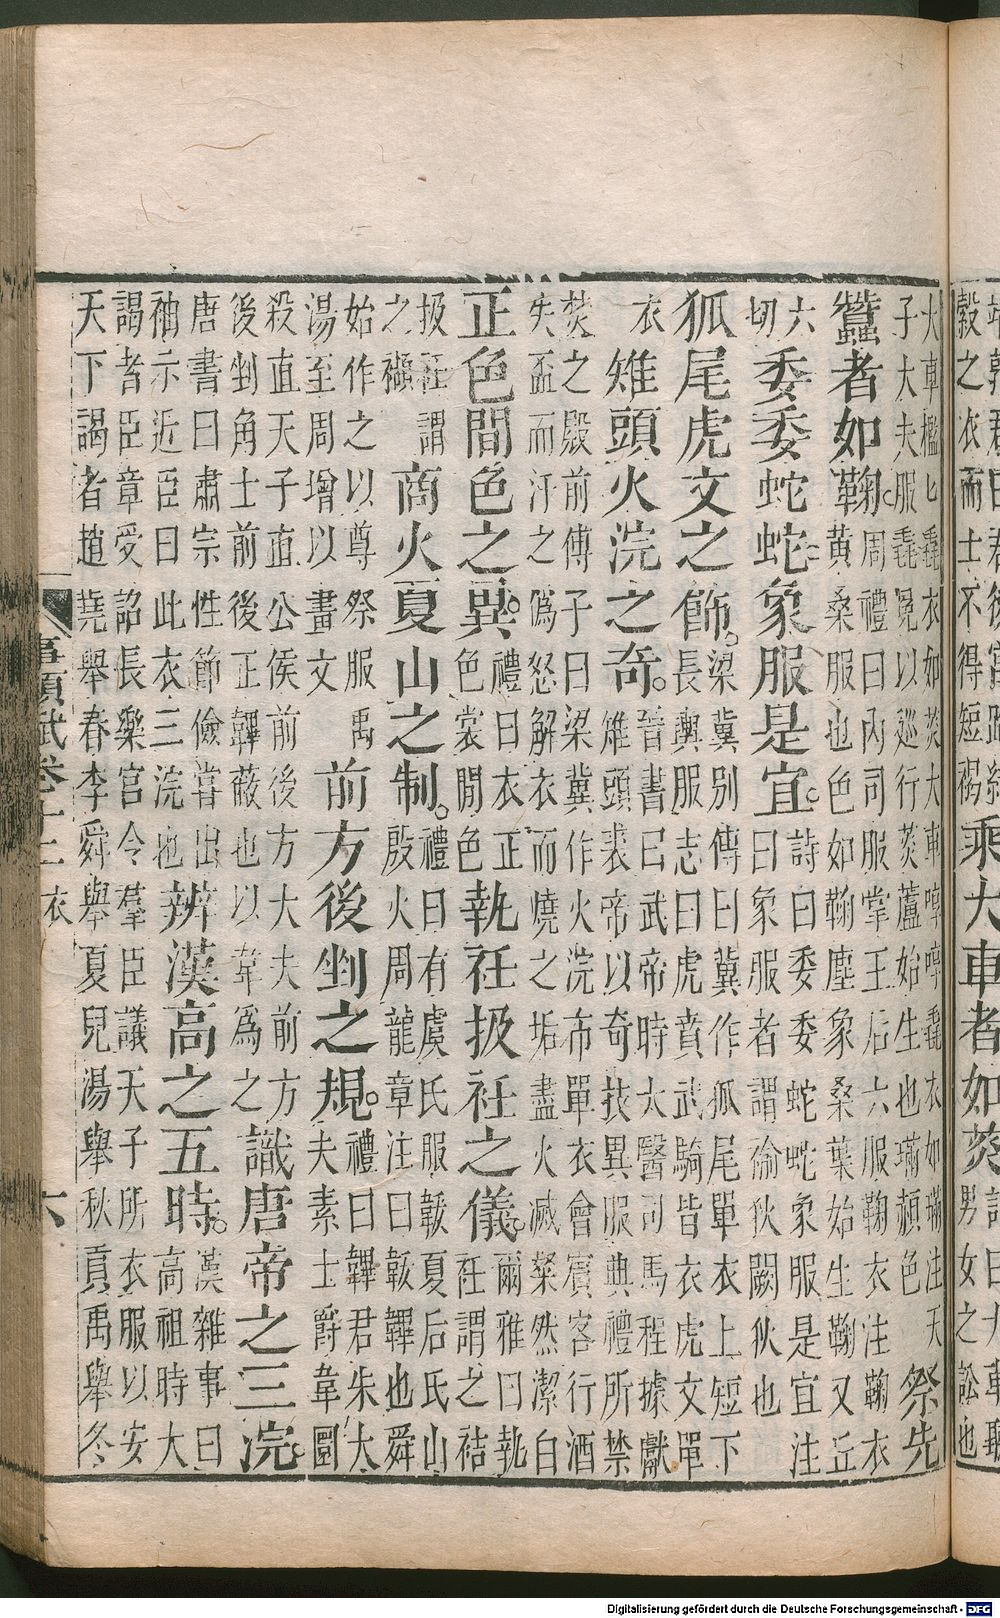 穀之衣而士不得短褐
乘大車者如菼
男女之訟也
大車檻匕毳衣如菼大車啍啍毳衣如璊注天
子大夫服毳冕以巡行菼蘆始生也璊頳色
祭先
蠶者如鞠
周禮曰內司服掌王后六服鞠衣注鞠衣
黃桑服也色如鞠塵象桑葉始生鞠又丘
六
切
委委蛇蛇象服是宜
詩曰委委蛇蛇象服是宜注
曰象服者謂褕狄闕狄也
狐尾虎文之飾
梁冀別傳曰冀作狐尾單衣上短下
長輿服志曰虎賁武騎皆衣虎文單
衣
雉頭火浣之奇
晉書曰武帝時大醫司馬程據獻
雉頭裘帝以奇技異服典禮所禁
焚之殿前傅子曰梁冀作火浣布單衣會賓客行酒
失盃而汙之偽怒解衣而燒之垢盡火滅粲然潔白
正色間色之異
禮曰衣正
色裳間色
執衽扱衽之儀
爾雅曰執
衽謂之袺
扱衽謂
之襭
商火夏山之制
禮曰有虞氏服韍夏后氏山
殷火周龍章注曰韍韠也舜
始作之以尊祭服禹
湯至周增以畫文
前方後剉之規
禮曰韠君朱大
夫素士爵韋圜
殺直天子直公侯前後方大夫前方
後剉角士前後正韠蔽也以韋為之
識唐帝之三浣
唐書曰肅宗性節儉嘗出
袖示近臣曰此衣三浣也
辨漢高之五時
漢雜事曰
高祖時大
謁者臣章受詔長樂宮令羣臣議天子所衣服以安
天下謁者趙堯舉春李舜舉夏兒湯舉秋貢禹舉冬
事類賦卷十二 衣 六
Digitalisierung gefördert durch die Deutsche Forschungsgemeinschaft - DFG